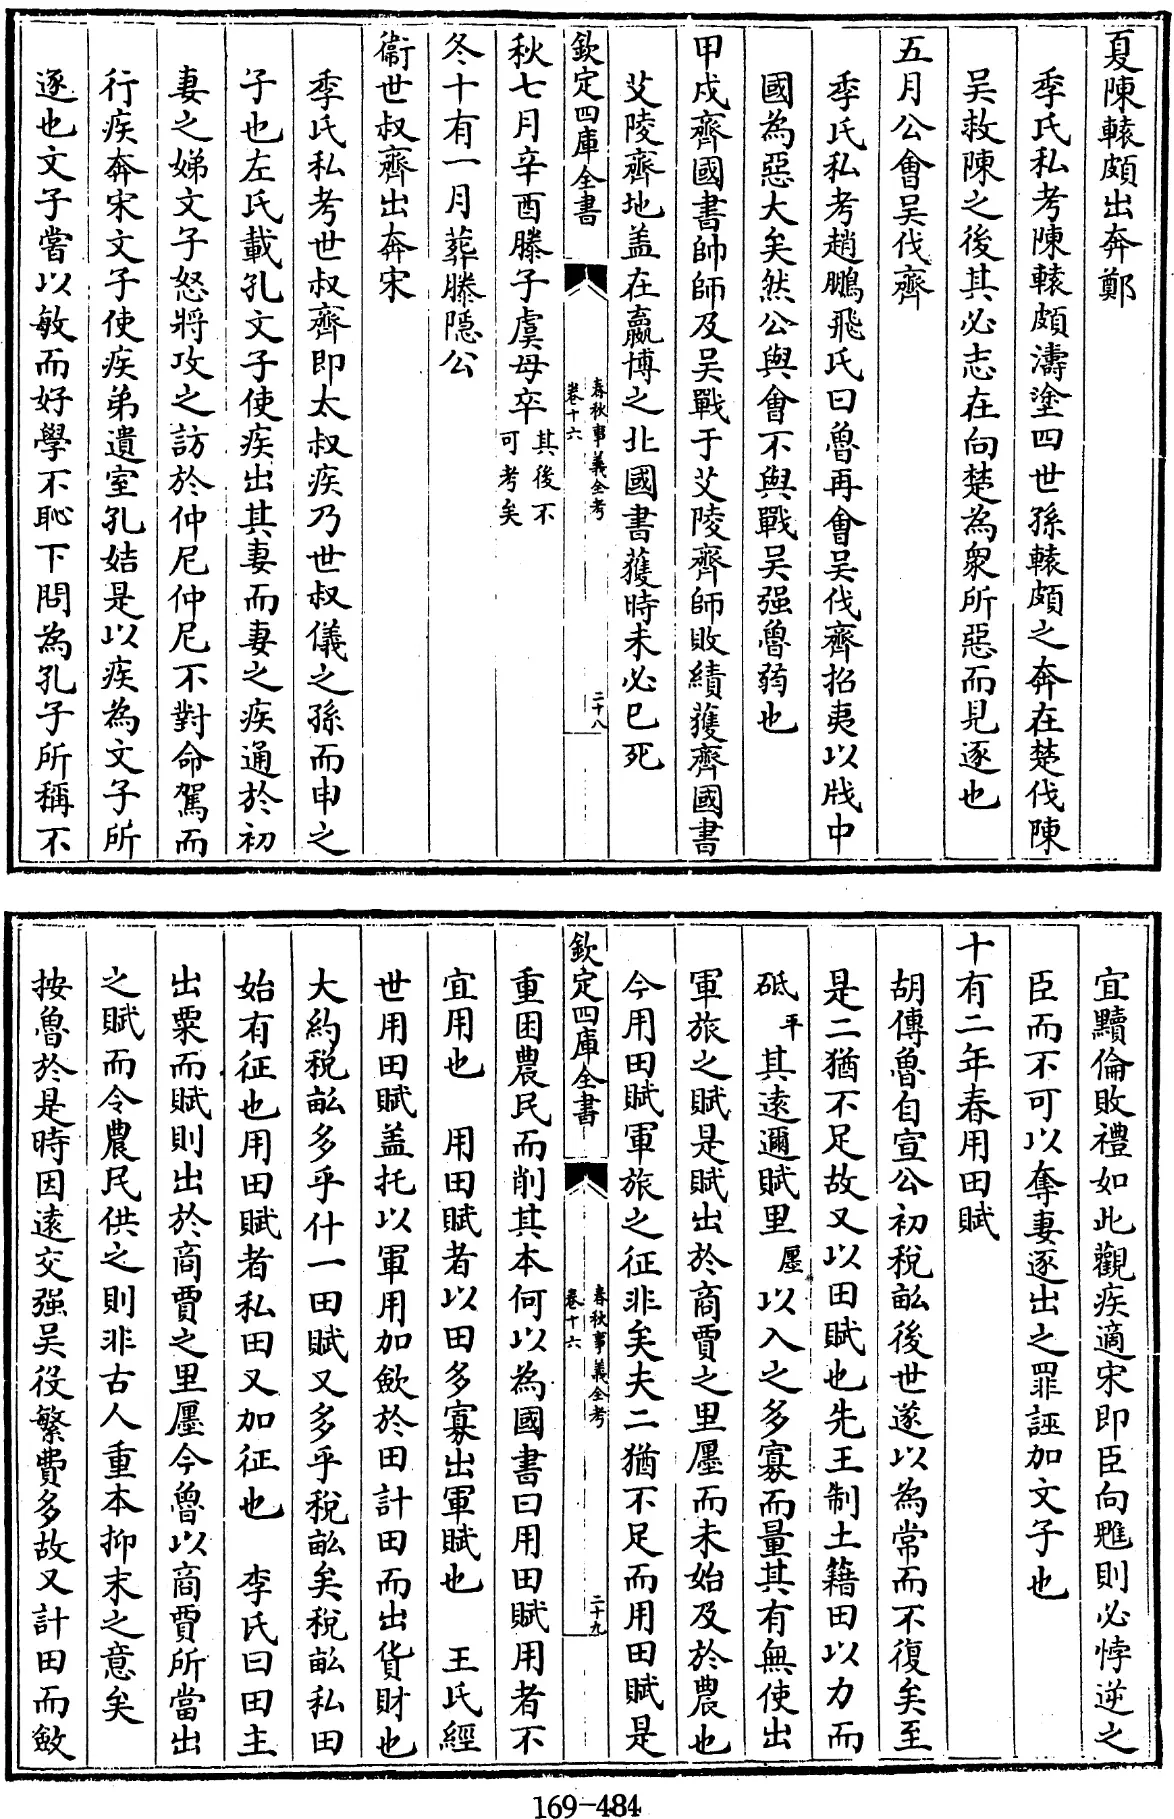 夏陳轅頗出奔鄭
季氏私考陳轅頗濤塗四世孫轅頗之奔在楚伐陳
吴救陳之後其必志在向楚為衆所惡而見逐也
五月公會吴伐齊
季氏私考趙鵬飛氏曰魯再會吴伐齊招夷以戕中
國為惡大矣然公與會不與戰吴强魯蒻也
甲戍齊國書帥師及吴戰于艾陵齊師敗績獲齊國書
艾陵齊地盖在嬴博之北國書獲時未必已死
欽定四庫全書
春秋事義全考
卷十六
二十八
秋七月辛酉滕子虞母卒其後不
可考矣
冬十有一月葬滕隱公
衞世叔齊出奔宋
季氏私考世叔齊即太叔疾乃世叔儀之孫而申之
子也左氏載孔文子使疾出其妻而妻之疾通於初
妻之娣文子怒將攻之訪於仲尼仲尼不對命駕而
行疾奔宋文子使疾弟遺室孔姞是以疾為文子所
逐也文子嘗以敏而好學不恥下問為孔子所稱不
宜黷倫敗禮如此觀疾適宋即臣向魋則必悖逆之
臣而不可以奪妻逐出之罪誣加文子也
十有二年春用田賦
胡傳魯自宣公初稅畝後世遂以為常而不復矣至
是二猶不足故又以田賦也先王制土籍田以力而
砥平其遠邇賦里㕓以入之多寡而量其有無使出
軍旅之賦是賦出於商賈之里㕓而未始及於農也
今用田賦軍旅之征非矣夫二猶不足而用田賦是
欽定四庫全書
春秋事義全考
卷十六
二十九
重困農民而削其本何以為國書曰用田賦用者不
宜用也　用田賦者以田多寡出軍賦也　王氏經
世用田賦盖托以軍用加歛於田計田而出貨財也
大約稅畝多乎什一田賦又多乎稅畝矣稅畝私田
始有征也用田賦者私田又加征也　李氏曰田主
出粟而賦則出於商賈之里㕓今魯以商賈所當出
之賦而令農民供之則非古人重本抑末之意矣
按魯於是時因遠交强吴役繁費多故又計田而斂
169-484